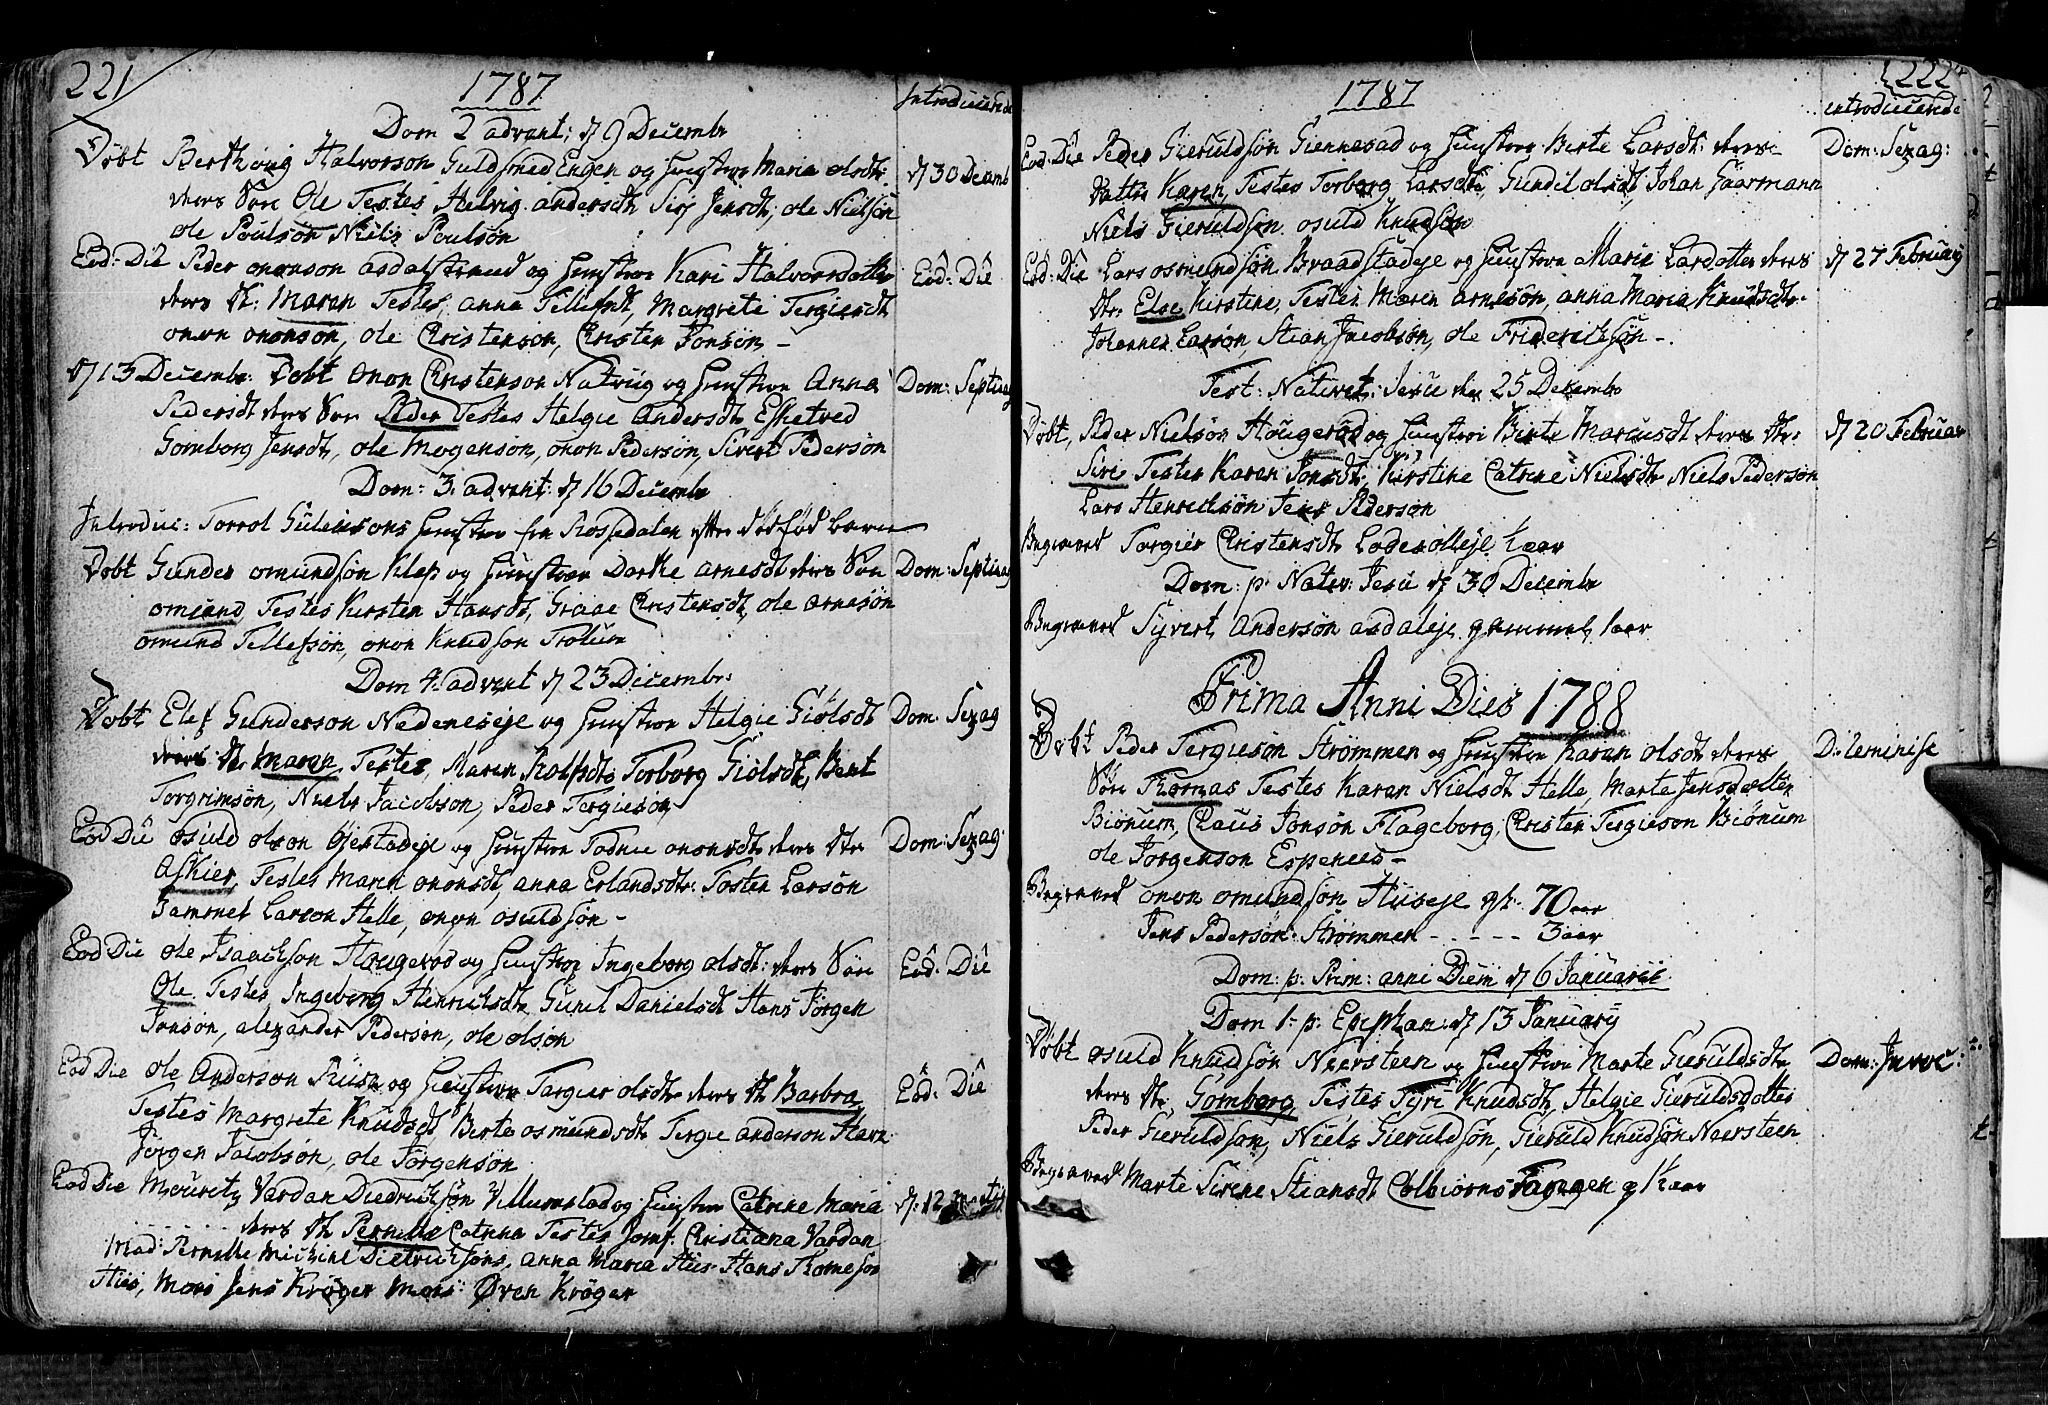 221
1787
Introducerede
Dom 2 advent: d 9 Decembr
Døbt Berthoug Halvorson Guldsmed Engen og Hustroe Maria olsdtr d 30 Decemb
deres Søn Ole Testes Helvig andersdtr Siri Jensdt, ole Nielsøn
ole Poulsøn Niels Poulsøn
Eod: Die Peder ononson asdalstrand og Hustroe Kari Halvorsdotter Eod: Die
deres dt: Maren Testes, anna Tellefsdt, Margrete Tergiesdt
onon ononsøn, ole Christenson, Christen Jonsøn -
d 13 Decembr: Døbt onon Christenson Natvig og Hustroe Anna Dom: Septuag
Pedersdt deres Søn Peder Testes Helgie Andersdt Esketved
Gomborg Jensdt, ole Mogenson, onon Pedersøn, Sivert Pederson
Dom: 3. advent: d 16 Decembr
Introduc: Torrol Hustroe fra Rossedalen efter dødfød barn
Døbt Gunder omundsøn Klep og Hustroe Dorthe arnesdt deres Søn Dom: Septuag
omund Testes Kirsten Hansdt, Graae Christensdt, ole arnesøn
omund Tellefsøn, onon Knudson Trolum
Dom 4. advent d 23 Decembr:
Døbt Elef Gunderson Nedeneseje og Hustroe Helgie Giølsdt Dom: Sexag
deres dt. Maren Testes, Maren Rolfsdt Torborg Giølsdt, Bent
Torgrimsøn, Niels Jacobson, Peder Tergiesøn
Eod Die osuld olson Øjestadeje og Hustroe Todne ononsdt deres dtr Dom: Sexag:
Askier, Testes Maren ononsdt, anna Erlandsdtr: Tosten Larsøn
Sammel Larson Helle, onon osuldsøn -
Eod Die ole Isaachson Hougerod og Hustroe Ingeborg olsdt: deres Søn Eod: Die
Ole. Testes, Ingeborg Henrichsdt, Gunil Danielsdt Hans Jørgen
Jonsøn, alexander Pedersøn, ole olsøn
Eod Die ole Anderson Riise og Hustroe Targier olsdtr deres dt Barbra Eod: Die
Testes Margrete Knudsdt Berte osmundsdt Tergie anderson Harr
Jørgen Jacobsøn, ole Jørgensøn
Eod Die Mouritz Vardan Diedrichsøn Villumstad og Hustroe Catrine Maria d: 12 Martij
deres dt Pernille Catrina Testes Jomf: Christiana Vardan
Mad: Pernille Michiel Dietrichsøns, anna Maria Hiis Hans Thomesøn
Hiis, Mons Jens Krøger Mons: Øven Krøger
222
1787
introducerede
Eod: Die Peder Gieruldsøn Giennesad og Hustroe Berte Larsdt: deres Dom: Sexag:
Datter Karen, Testes Torborg Larsdt, Gundil olsdt, Johan Gaarmann
Niels Gieruldsøn osuld Knudsøn
Eod: Die Lars osmundsøn Braadstadeje og Hustroe Marie Larsdotter deres d 27 February
dtr: Else Kirstine, Testes Maren arnesøn, anna Maria Knudsdtr.
Johannes Larsøn, Stian Jacobsøn, ole Friderichsøn -
Fest: Nativet: Jesu den 25 Decembr
Døbt, Peder Nielsøn Hougerød og Hustroe Birte Marcusdt deres dtr. d 20 Februar
Siri Testes Karen Jonsdt, Kirstine Catrine Nielsdt Niels Pedersøn
Lars Henrichsøn Jens Pedersøn
Begraved Torgier Christensdt Loderølleje Kaar
Dom: p: Nativ: Jesu d 30 Decembr
Begraved Syvert Andersøn asdaleje gammel 1aar
Prima Anni Dies 1788
Døbt Peder Tergiesøn Strømmen og Hustroe Karen olsdt deres D: Reminise
Søn Thomas Testes Karen Nielsdt Helle, Marte Jensdotter
Biønum, Claus Jonsøn Flageborg, Christen Tergieson Biønum
ole Jørgenson Espenees -
Begraved onon omundsøn Huseje gl: 70 aar
Jens Pedersøn Strømmen - - - - - 3 aar
Dom: p: Prim: anni Diem d 6 Januarii
Dom 1. p. Epiphan: d 13 January
Døbt osuld Knudsøn Neersteen og Hustroe Marte Gieruldsdt Dom: Invoc:
deres dtr. Gomborg, Testes Tyri Knudsdt, Helgie Gieruldsdotter
Peder Gieruldson, Niels Gieruldsøn, Gieruld Knudsøn Neersteen
Begraved Marte Sirene Stiansdt Colbiørns